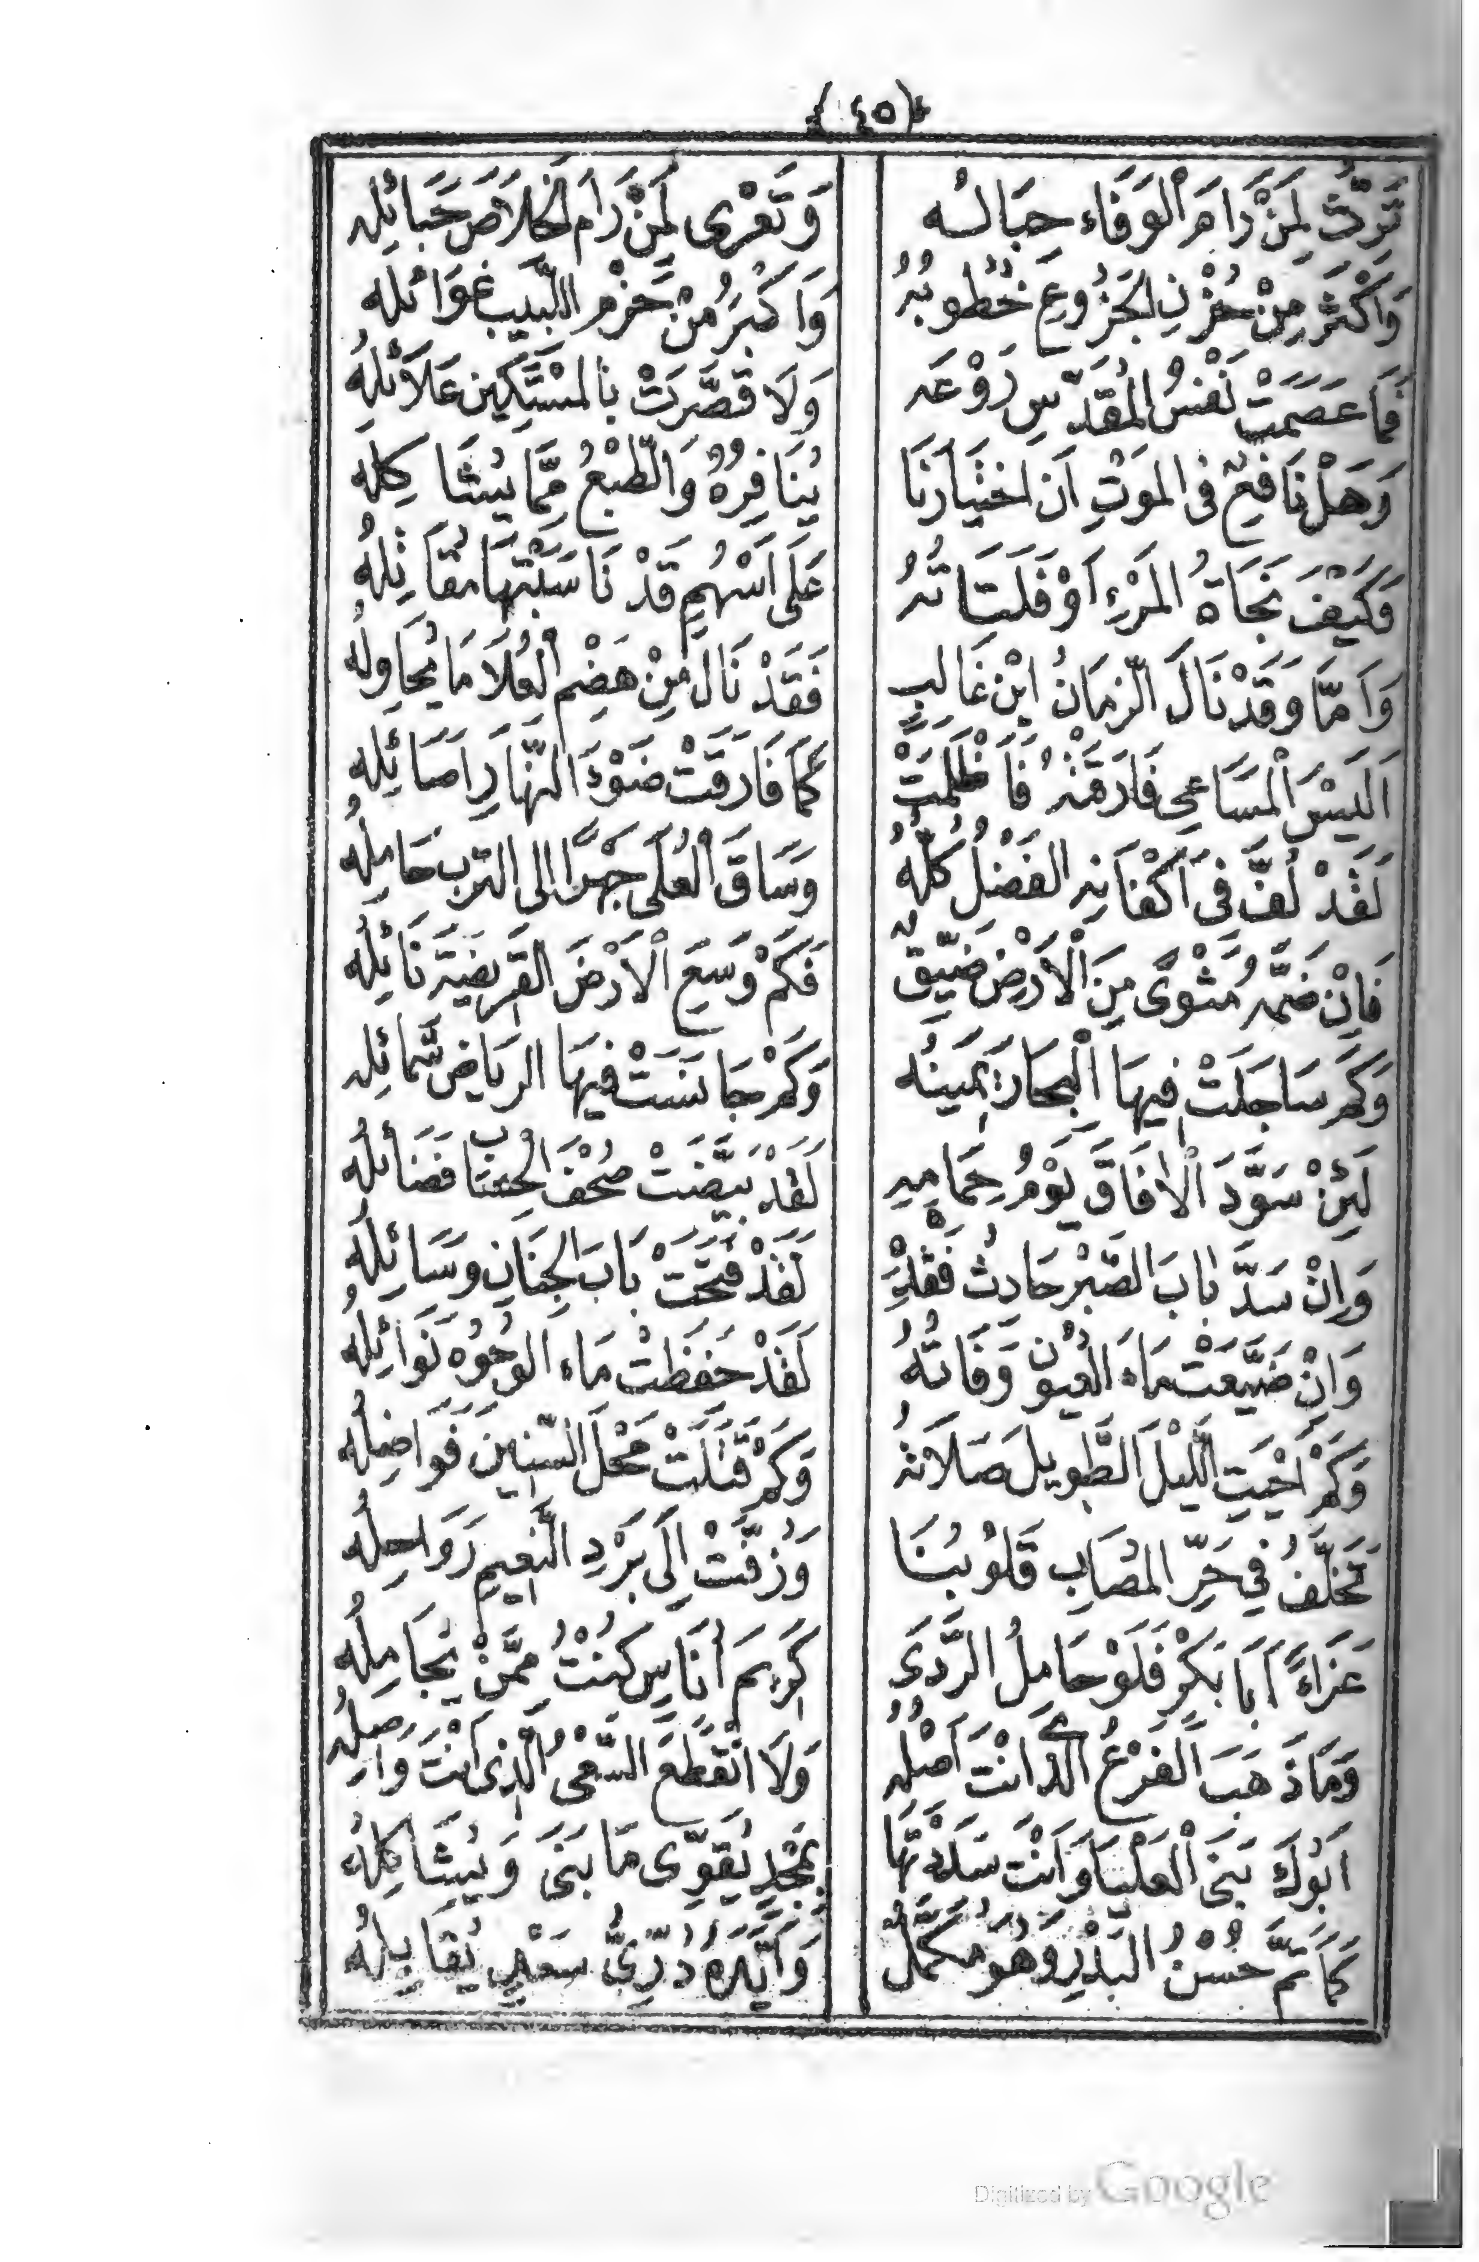 ﴿٤٥﴾
تَرِثُّ لِمَنْ رَامَ الْوَفَاءَ حِبَالُه وَتَعْرٰى لِمَنْ رَامَ الْخَلَاصَ حَبَائِلُه
وَاَكْثَرُ مِنْ حُزْنِ الجَزُوعِ خُطُوبُهُ وَاَكْبَرُ مِنْ حَزْمِ اللَّبِيبِ غَوَائِلُه
فَمَا عَصَمَتْ نَفْسُ المُقَدَّسِ رَوْعَه وَلَا قَصَّرَتْ بِالمُسْتَكِينِ عَلَائِلُهُ
وَهَلْ نَافِعٌ فى المَوْتِ اَن اخْتِيَارَنَا يُنَافِرُهُ وَالطَّبْعُ مِمَّا يُشَاكِلُه
وَكَيْفَ نَجَاةُ المَرْءِ اَوْ فَلَتَاتُهُ عَلَى اَسْهُمٍ قَدْ نَاسَبَتْهَا مَقَاتِلُهُ
وَاَمَّا وَقَدْ نَالَ الزَّمَانُ ابْنَ غَالِبٍ فَقَدْ نَالَ مِنْ هَضْمِ الْعُلَا مَا يُحَاوِلُهُ
اَلَيْسَ الْمَسَاعِى فَارَقَتْهُ فَاَظْلَمَتْ كَمَا فَارَقَتْ ضَوْءَ النَّهَارِ اَصَائِلُه
لَقَدْ لُفَّ فِى اَكْفَانِهِ الفَضْلُ كُلُّهُ وَسَاقَ الْعُلَى جَهْرًا الى التُّرْبِ حَامِلُهُ
فَاِنْ ضَمَّهُ مَثْوًى مِنَ الْاَرْضِ ضَيِّقٌ فَكَمْ وَسِعَ الْاَرْضَ العَرِيضَةَ نَائِلُهُ
وَكَمْ سَاجَلَتْ فِيهَا الْبِحَارَ يَمِينُه وَكَمْ جَانَسَتْ فِيهَا الرِيَاضَ شَمَائِلُه
لَئِنْ سَوَّدَ الْاٰفَاقَ يَوْمُ حِمَامِهِ لَقَدْ بَيَّضَتْ صُحْفَ الحِسَابِ فَضَائِلُهُ
وَاِنْ سَدَّ بَابَ الصَّبْرِ حَادِثُ فَقْدِهِ لَقَدْ فَتَحَتْ بَابَ الجِنَانِ وَسَائِلُهُ
وَاِنْ ضَيَّعَتْ مَاءَ العُيُونِ وَفَاتُهُ لَقَدْ حَفِظَتْ مَاءَ الوُجُوهِ نَوَائِلُهُ
وَكَمْ اَحْيَتِ اللَّيْلَ الطَّوِيلَ صَلَاتُهُ وَكَمْ قَتَلَتْ مَحْلَ السِّنِينَ فَوَاضِلُهُ
تَخَلَّفُ فِى حَرِّ المُصَابِ قُلُوبُنَا وَزُفَّتْ اِلَى بَرْدِ النَّعِيمِ رَوَاحِلُه
عَزَاءً اَبَا بَكْرٍ فَلَوْ حَامِلُ الرَّدَى كَرِيمَ اُنَاسٍ كُنْتُ مِمَّنْ يُجَامِلُهُ
وَمَا ذَهَبَ الفَرْعُ الَّذِى اَنْتَ اَصْلُهُ وَلَا انْقَطَعَ السَّعْىُ الَّذِى اَنْتَ وَاصِلُهُ
اَبُوكَ بَنَى الْعَلْيَا وَاَنْتَ سَدَدْتَهَا بِمَجْدٍ يُقَوِّى مَا بَنَى وَيُشَاكِلُهُ
كَمَا تَمَّ حُسْنُ البَدْرِ وَهْوَ مُكَمَّلٌ وَاَيَّدَهُ دُرِّىُّ سَعْدٍ يُقَابِلُهُ
Digitized by Google